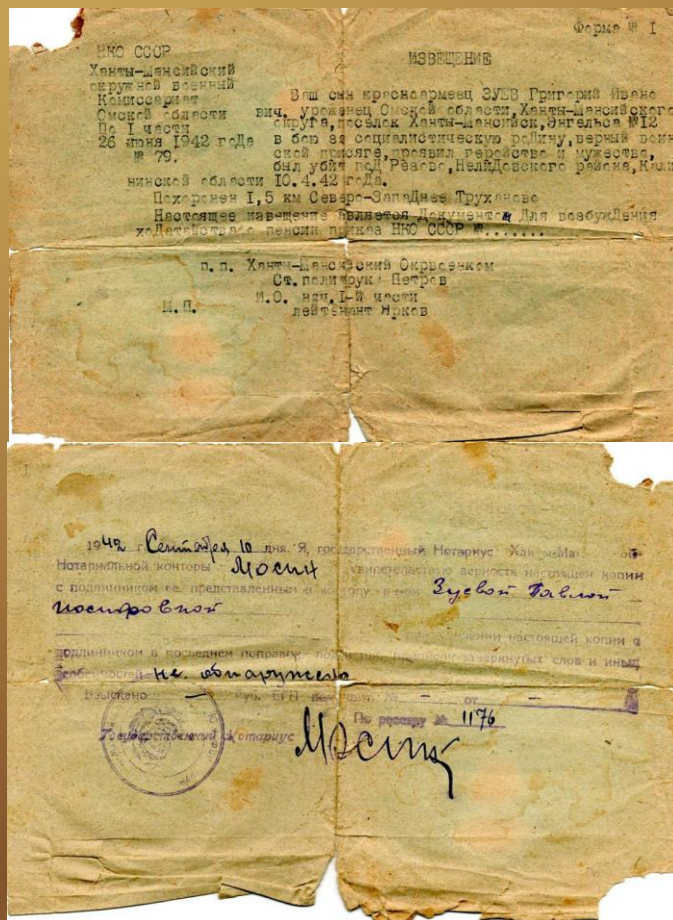 Форма № I
НКО СССР
ИЗВЕЩЕНИЕ
Ханты-Мансийский
окружной военный
Комиссариат
Омской области
По I части
26 июня 1942 года
№ 79.
Ваш сын красноармеец ЗУЕВ Григорий Ивано
вич, уроженец Омской области, Ханты-Мансийского
округа, поселок Ханты-Мансийск, Энгельса №12
в бою за социалистическую родину, верный воин
ской присяге, проявил геройство и мужество,
был убит под Резово, Нелидовского района, Кали
нинской области 10.4.42 года.
Похоронен I,5 км Северо-Западнее Труханово
Настоящее извещение является документом для возбуждения
ходатайства о пенсии приказ НКО СССР №.......
п.п. Ханты-Мансийский Окрвоенком
Ст. политрук Петров
И.О. нач. I-й части
М.П. лейтенант Ярков
1942 г. Сентября 10 дня. Я, государственный Нотариус
Нотариальной конторы Мосин свидетельствую верность настоящей копии
с подлинником ее, представленным в контору Зуевой Павлой
Иосифовной
настоящей копии с
подлинником в последнем зачеркнутых слов и иных
особенностей не обнаружено
Взыскано — руб. — от —
По реестру № 1176
Государственный Нотариус Мосин